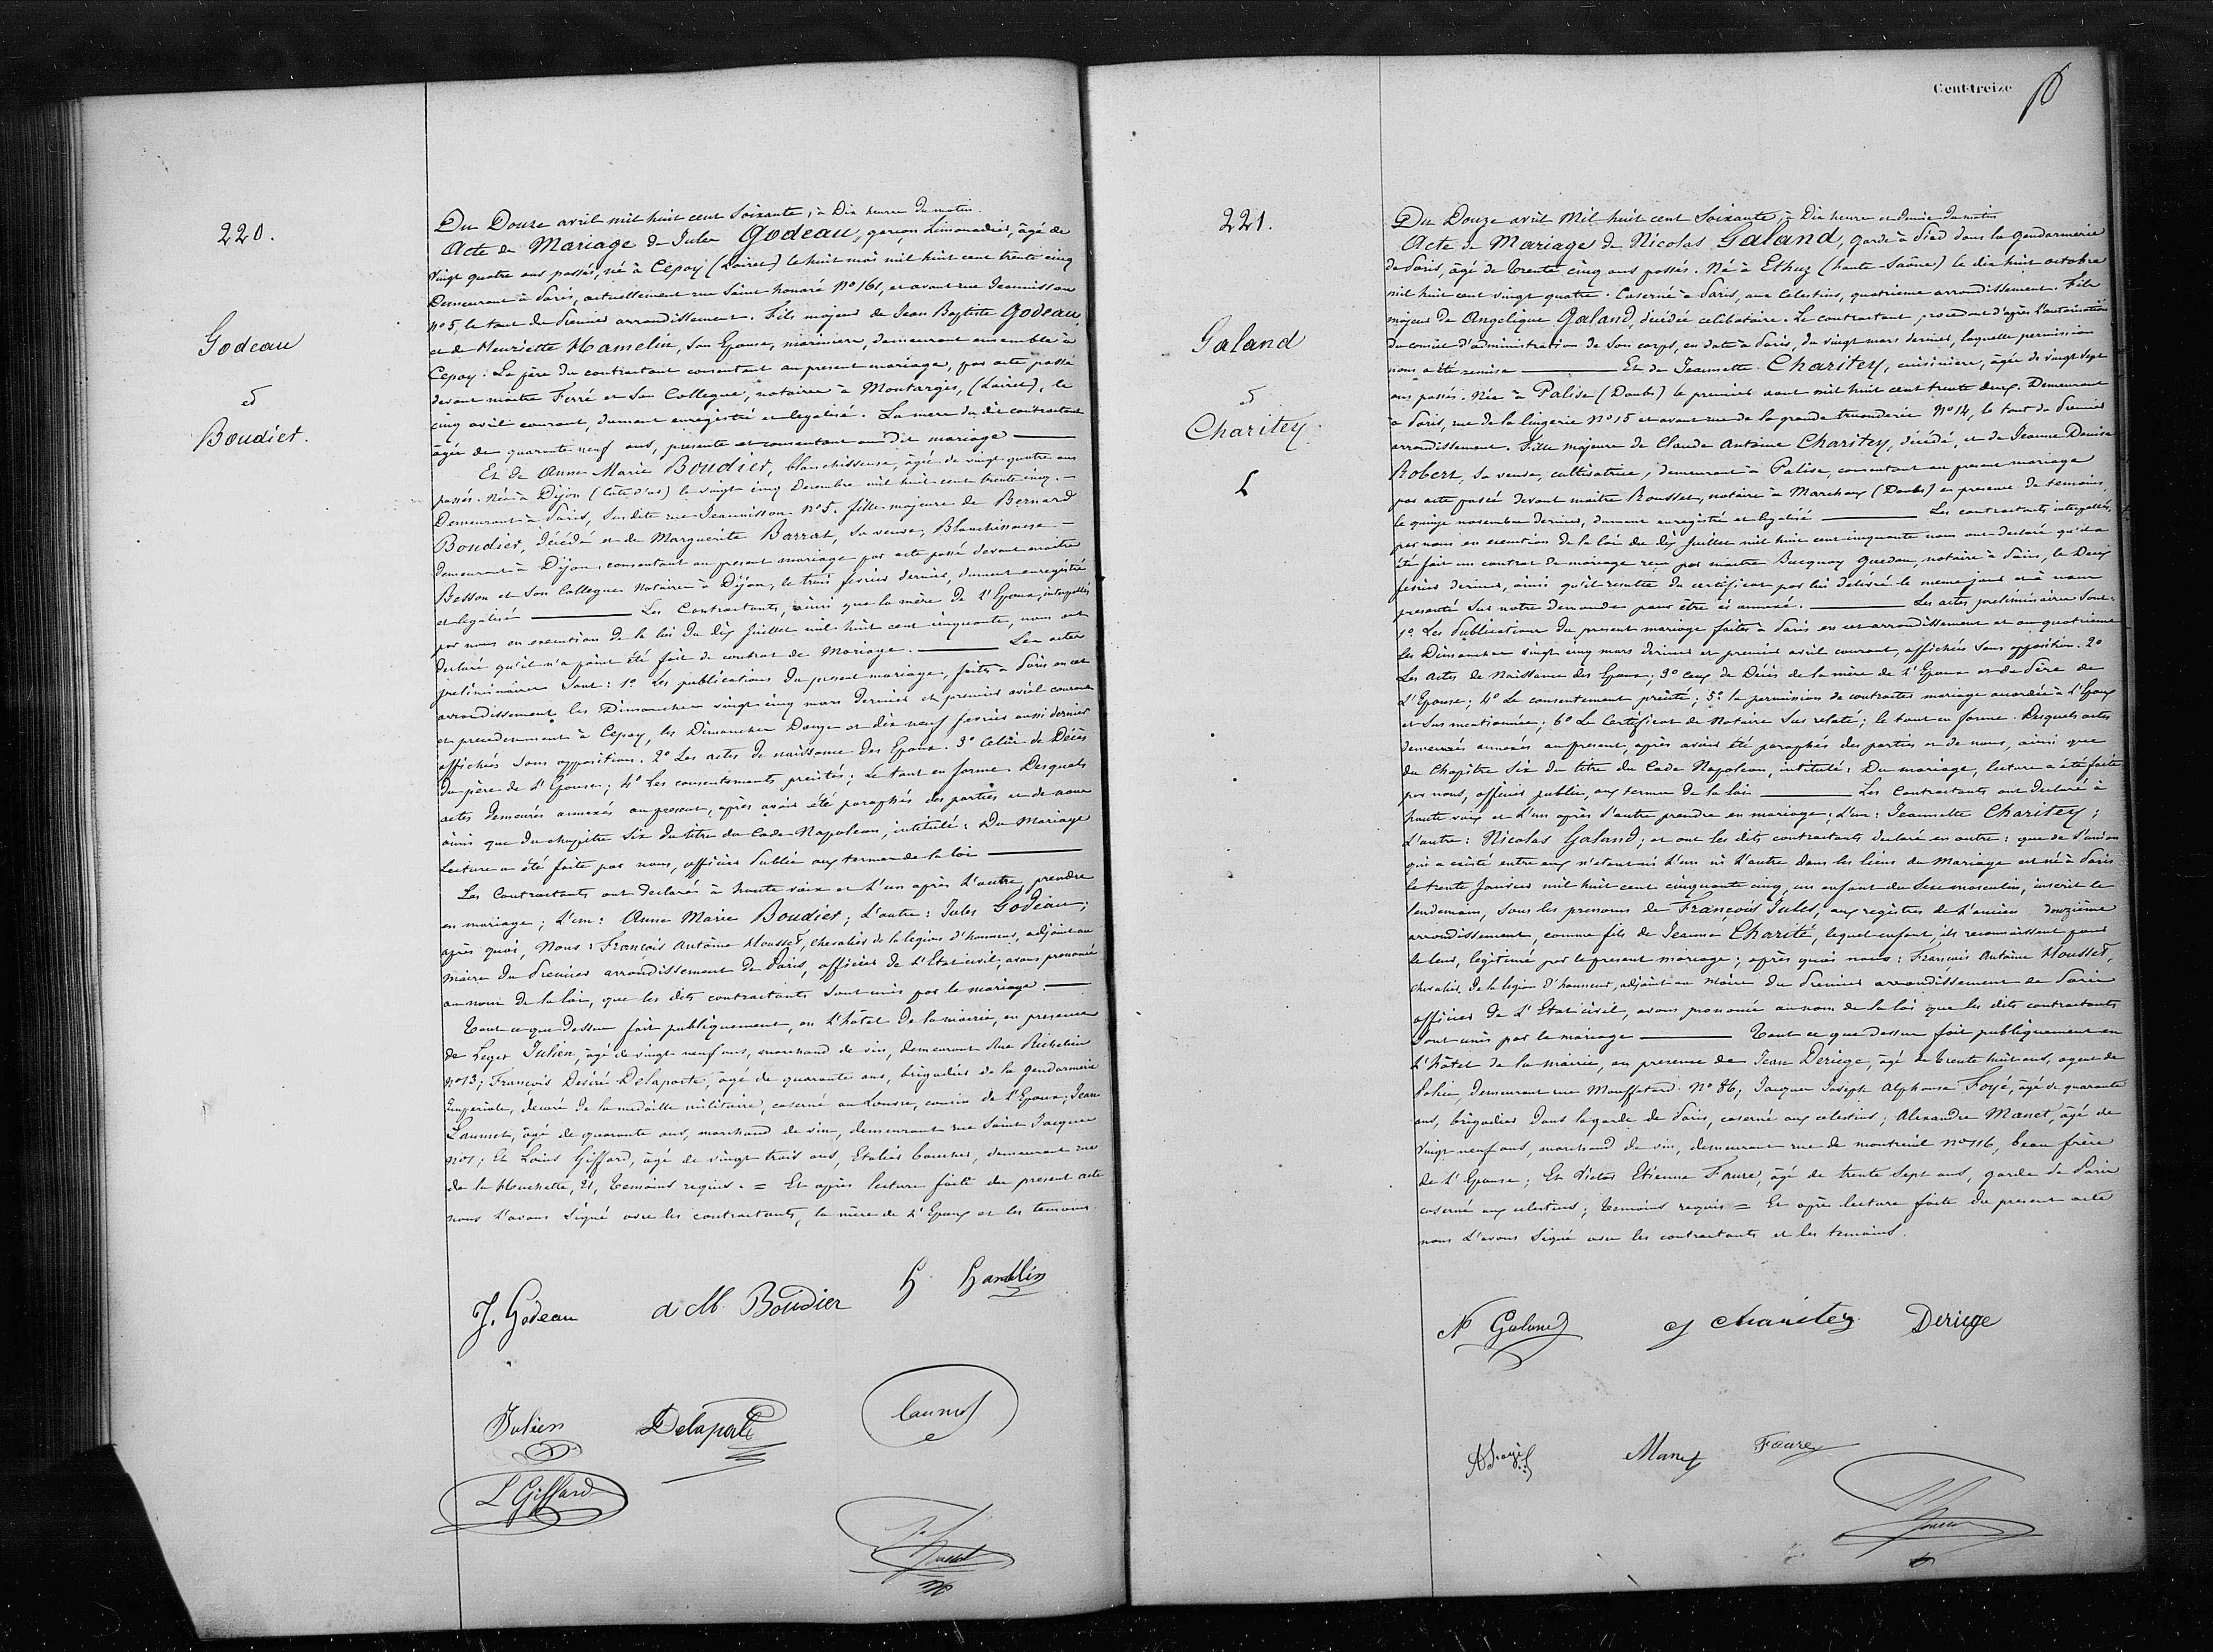 220.
Godeau
et
Boudier.
Du Douze avril mil huit cent soixante, à Dix heures du matin.
Acte de Mariage de Jules Godeau, garçon Limonadier, âgé de
vingt quatre ans passés, né à Cepoy (Loiret) le huit mai mil huit cent trente cinq
Demeurant à Paris, actuellement rue Saint honoré No 161, et avant rue Jeannisson
no 5, le tout du premier arrondissement. Fils majeur de Jean Baptiste Godeau,
et de Henriette Hamelin, son Epouse, mariniers, demeurant ensemble à
Cepoy. Le père du contractant consentant au present mariage, par acte passé
devant maître Ferré et son Collegue, notaires à Montargis, (Loiret), le
cinq avril courant, dument enregistré et legalisé. La mere du dit contractant
âgée de quarante neuf ans, presente et consentant au dit mariage
Et de Anne Marie Boudier, blanchisseuse, âgée de vingt quatre ans
passés. Née à Dijon (Côte d'or) le vingt cinq Decembre mil huit cent trente cinq.
Demeurant à Paris, susdite rue Jeannisson no 5. fille majeure de Bernard
Boudier, décédé et de Marguerite Barrat, sa veuve, Blanchisseuse
demeurant à Dijon, consentant au present mariage par acte passé devant maître
Besson et son Collegue Notaires à Dijon, le trois février dernier, dument enregistré
et legalisé Les Contractants, ainsi que la mère de l'Epoux, interpellés
par nous en execution de la loi du dix juillet mil huit cent cinquante, nous ont
declaré qu'il n'a point été fait de contrat de Mariage. Les actes
preliminaires sont: 1o Les publications du present mariage, faites à Paris en cet
arrondissement les Dimanches vingt cinq mars dernier et premier avril courant
et precedemment à Cepoy, les Dimanches Douze et dix neuf fevrier aussi dernier
affichées sans opposition. 2o Les actes de naissance des Epoux. 3o Celui de Décès
du père de l'Epouse; 4o Les consentements précités; Le tout en forme. Desquels
actes demeurés annexés au present, après avoir été paraphés des parties et de nous
ainsi que du chapitre six du titre du Code Napoleon, intitulé: Du Mariage
Lecture a été faite par nous, officier Public aux termes de la loi
Les Contractants ont declarés à haute voix et l'un après l'autre prendre
en mariage; L'un: Anne Marie Boudier; L'autre: Jules Godeau;
après quoi, Nous: François Antoine Housset, chevalier de la legion d'honneur, adjoint au
maire du Premier arrondissement de Paris, officier de l'Etat civil, avons prononcé
au nom de la loi, que les dits contractants sont unis par le mariage.
Tout ce que dessus fait publiquement, en l'hôtel de la mairie, en presence
de Leger Julien, âgé de vingt neuf ans, marchand de vin, demeurant Rue Richelieu
no 13; François Desiré Delaporte, agé de quarante ans, brigadier de la gendarmerie
Imperiale, decoré de la medaille militaire, caserné au Louvre, cousin de l'Epoux; Jean
Laumet, âgé de quarante ans, marchand de vin, demeurant rue Saint Jacques
no 1; Et Louis Giffard, âgé de vingt trois ans, Etalier boucher, demeurant rue
de la Huchette, 21, temoins requis. = Et après lecture faite du present acte
nous l'avons signé avec les contractants, la mère de l'Epoux et les temoins.
J. Godeau a M Boudier h hamblin
Julien Delaporte Laumet
L Giffard
Housset
Cent-treize
221.
Galand
et
Charitey
L
Du Douze avril Mil huit cent Soixante, à Dix heures et demie du matin
Acte de Mariage de Nicolas Galand, garde à Pied dans la gendarmerie
de Paris, âgé de trente cinq ans passés. Né à Ethuz (haute-Saône) le dix huit octobre
mil huit cent vingt quatre. Caserné à Paris, aux Celestins, quatrieme arrondissement. Fils
majeur de Angelique Galand, décédée celibataire. Le contractant procedant d'après l'autorisation
du conseil d'administration de son corps, en date à Paris, du vingt mars dernier, laquelle permission
nous a été remise Et de Jeannette Charitey, cuisinière, âgée de vingt sept
ans passés. Née à Palise (Doubs) le premier aout mil huit cent trente deux. Demeurant
à Paris, rue de la lingerie No 15 et avant rue de la grande truanderie No 14, le tout du Premier
arrondissement. Fille majeure de Claude Antoine Charitey, décédé, et de Jeanne Denise
Robert, sa veuve, cultivatrice, demeurant à Palise, consentant au present mariage
par acte passé devant maitre Rousset, notaire à Marchaux (Doubs) en presence de temoins,
le quinze novembre dernier, dument enregistré et legalisé Les contractants interpellés,
par nous en execution de la loi du dix Juillet mil huit cent cinquante nous ont declaré qu'il a
été fait un contrat de mariage reçu par maitre Bucquoy Guedon, notaire à Paris, le Deux
fevrier dernier, ainsi qu'il resulte du certificat par lui délivré le meme jour et à nous
presenté sur notre demande pour être ci annexé. Les actes preliminaires sont:
1o Les Publications du present mariage faites à Paris en cet arrondissement et au quatrieme
les Dimanches vingt cinq mars dernier et premier avril courant, affichées sans opposition. 2o
Les actes de Naissance des Epoux; 3o ceux de Décès de la mère de l'Epoux et du Père de
l'Epouse; 4o Le consentement précité; 5o la permission de contracter mariage accordée à l'Epoux
et sus mentionnée; 6o Le Certificat de Notaire sus relaté; le tout en forme. Desquels actes
demeurés annexés au present, après avoir été paraphés des parties et de nous, ainsi que
du Chapitre six du titre du Code Napoleon, intitulé: Du mariage, lecture a été faite
par nous, officier public, aux termes de la loi Les Contractants ont declaré à
haute voix et l'un après l'autre prendre en mariage; L'un: Jeannette Charitey;
L'autre: Nicolas Galand; et ont les dits contractants declaré en outre: que de l'union
qui a existé entre eux n'étant ni l'un ni l'autre dans les liens du Mariage est né à Paris
le trente Janvier mil huit cent cinquante cinq, un enfant du Sexe masculin, inscrit le
lendemain, sous les prenoms de François Jules, aux registres de l'ancien douzième
arrondissement, comme fils de Jeanne Charité, lequel enfant, ils reconnaissent pour
le leur, legitimé par le present mariage; après quoi nous: François Antoine Housset,
chevalier de la legion d'honneur, adjoint au Maire du Premier arrondissement de Paris
officier de l'Etat civil, avons prononcé au nom de la loi que les dits contractants
sont unis par le mariage Tout ce que dessus fait publiquement en
l'hôtel de la mairie, en presence de Jean Deriege, âgé de trente huit ans, agent de
Police, demeurant rue Mouffetard No 86; Jacques Joseph Alphonse Foyé, âgé de quarante
ans, brigadier dans la garde de Paris, caserné aux celestins; Alexandre Manet, âgé de
vingt neuf ans, marchand de vin, demeurant rue de montreuil no 116, beau frère
de l'Epouse; Et Victor Etienne Faure, âgé de trente sept ans, garde de Paris
caserné aux celestins; temoins requis = Et après lecture faite du present acte
nous l'avons signé avec les contractants et les temoins.
N Galand J charitey Deriege
Manet Faure
Housset